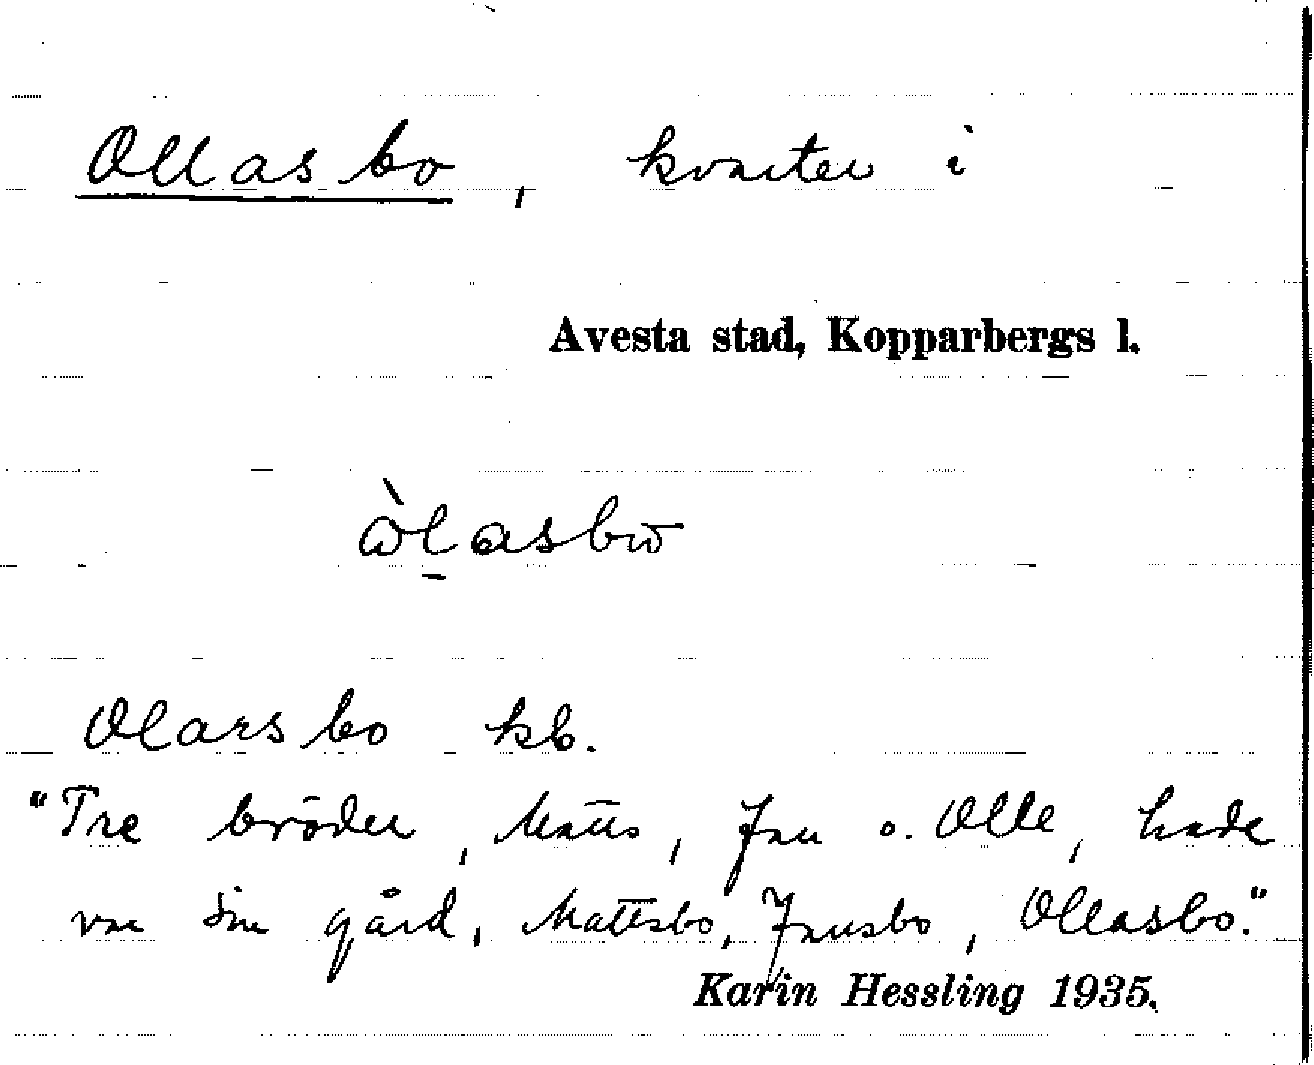 Ollasbo, kvarter i
Avesta stad, Kopparbergs l.
Olarsbo kb.
"Tre bröder, Matts, Jan o. Olle, hade
var sin gård, Mattsbo, Jansbo, Ollasbo."
Karin Hessling 1935.